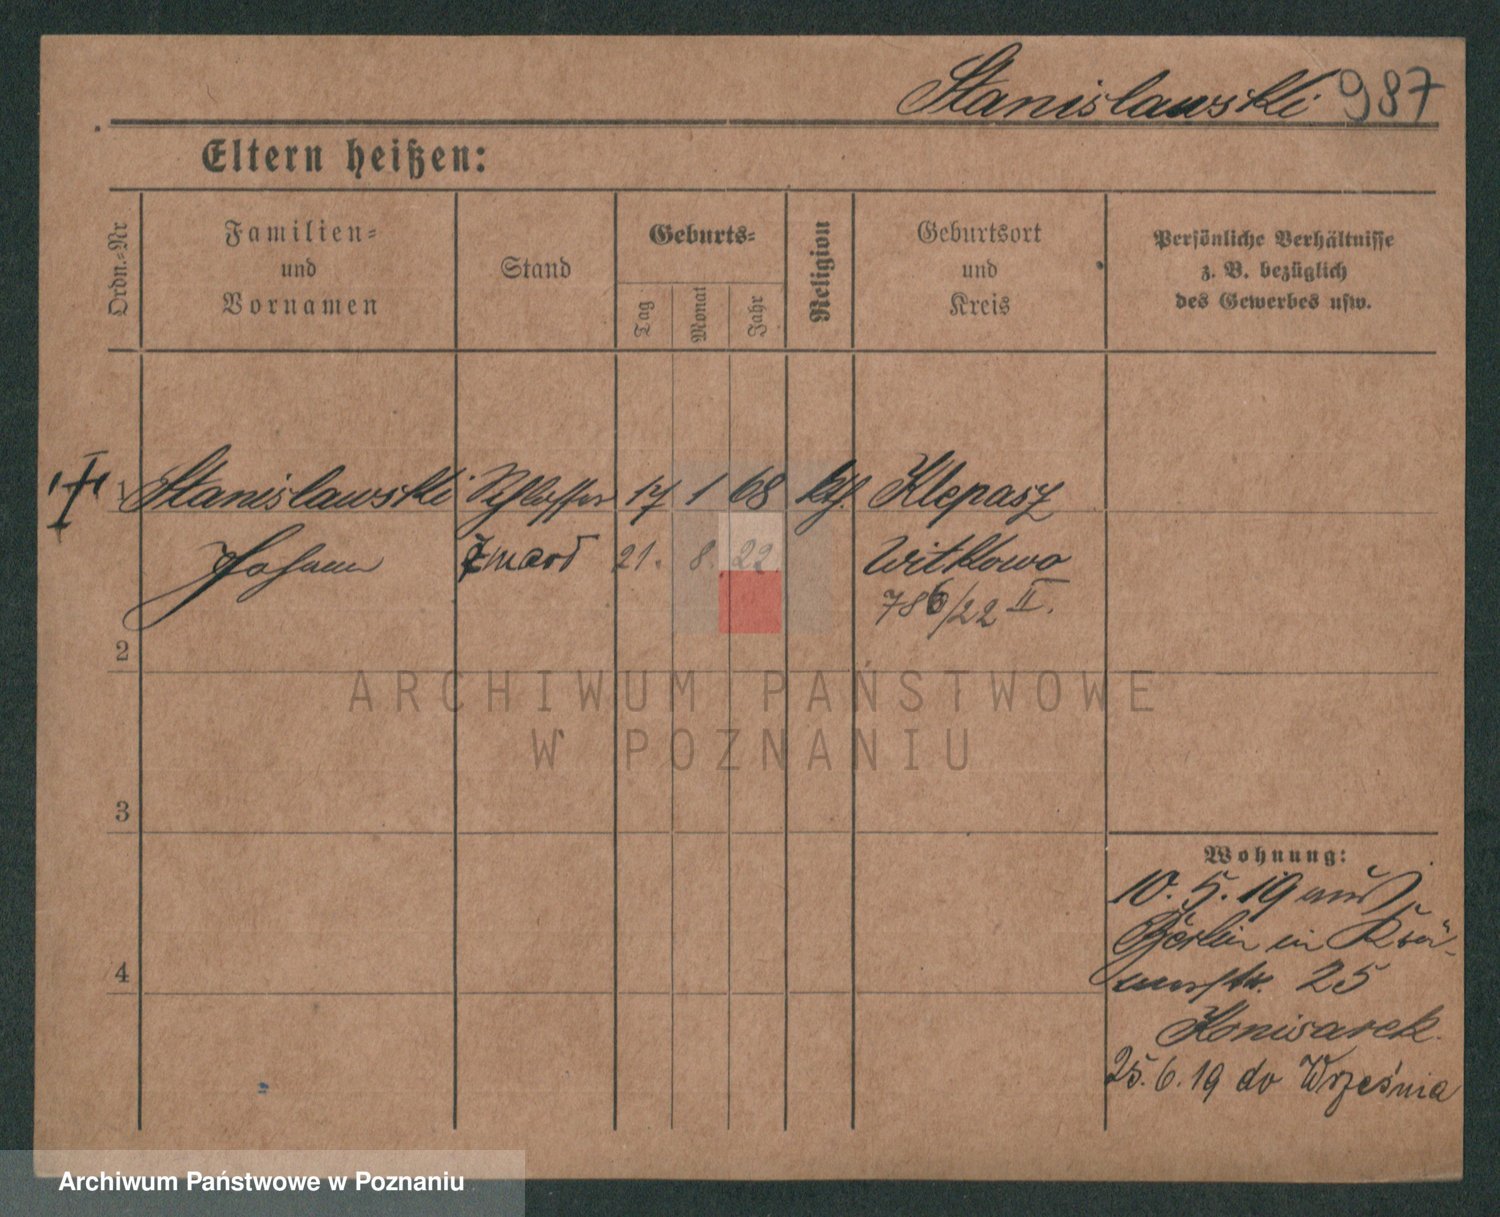 Stanislawski 987
Eltern heißen:
Ordn.-Nr
Familien-
und
Vornamen
Stand
Geburts-
Tag
Monat
Jahr
Religion
Geburtsort
und
Kreis
Persönliche Verhältnisse
z. B. bezüglich
des Gewerbes usw.
1 Stanislawski Schlosser 17 1 68 kth. Klepasz
Johann zmarł 21. 8. 22 Witkowo
786/22 II.
2
ARCHIWUM PAŃSTWOWE
W POZNANIU
3
Wohnung:
10. 5. 19 aus
Berlin in
4
25
25. 6. 19 do Września
Archiwum Państwowe w Poznaniu